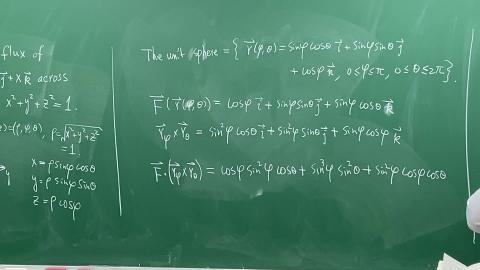 flux of
j⃗ + x k⃗ across
x²+y²+z² = 1.
=(ρ,φ,θ), ρ=√x²+y²+z²
= 1.
x = ρ sinφ cosθ
y = ρ sinφ sinθ
z = ρ cosφ
The unit sphere = { r⃗(φ,θ) = sinφ cosθ i⃗ + sinφ sinθ j⃗
+ cosφ k⃗, 0≤φ≤π, 0≤θ≤2π }.
F⃗( r⃗(φ,θ)) = cosφ i⃗ + sinφ sinθ j⃗ + sinφ cosθ k⃗
r⃗φ × r⃗θ = sin²φ cosθ i⃗ + sin²φ sinθ j⃗ + sinφ cosφ k⃗
F⃗·(r⃗φ × r⃗θ) = cosφ sin²φ cosθ + sin³φ sin²θ + sin²φ cosφ cosθ